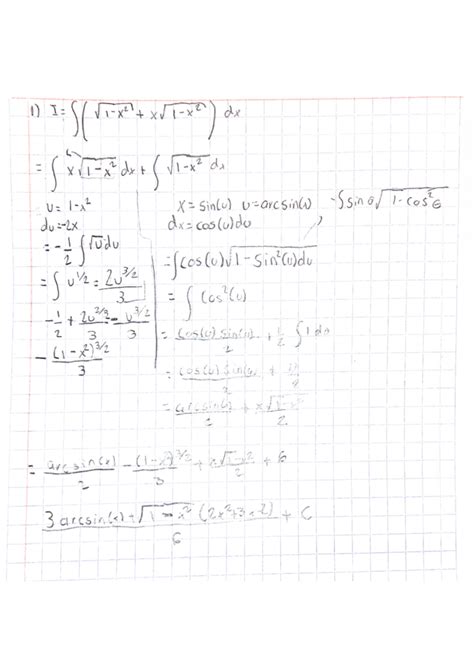 1) I = ∫(√1-x² + x√1-x²) dx
= ∫ x√1-x² dx + ∫ √1-x² dx
u = 1-x²
du = -2x
= -1/2 ∫ √u du
= ∫ u^1/2 = 2u^3/2 / 3
-1/2 + 2u^2/3 / 3 - u^3/2 / 3
- (1-x²)^3/2 / 3
x = sin(u) u = arcsin(u)
dx = cos(u) du
-∫ sin θ √1-cos²θ
= ∫ cos(u) √1-sin²(u) du
= ∫ cos²(u)
= cos(u) sin(u) / 2 + 1/2 ∫ 1 du
= cos(u) sin(u / 2 +
= arcsin(u) / 2 + x√1-x² / 2
= arcsin(x) / 2 - (1-x²)^3/2 / 3 + x√1-x² / 2 + C
3 arcsin(x) + √1-x² (2x²+3x-2) / 6 + C